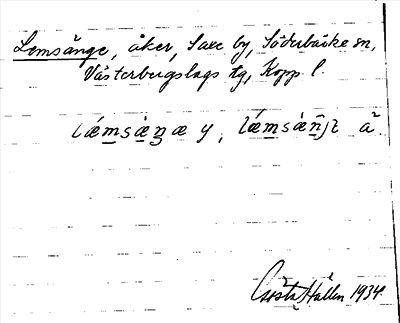 Lemsänge, åker, Saxe by, Söderbärke sn,
Västerbergslags tg, Kopp. l.
lǽmsæ̀ŋæ y, lǽmsæ̀ñʃɩ a².
Gösta Hallén 1934